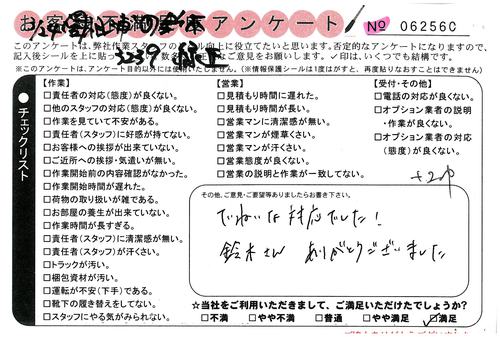 アンケート
No 06256C
このアンケートは、弊社作業ス
の向上に役立てたいと思います。否定的なアンケートになりますので、
記入後シールを上に貼って
なご意見をお願いします。✓印は、いくつでも結構です。
※このアンケートは、アンケート目的以外には使用いたしません。(※情報保護シールは1度はがすと、再度貼りなおすことはできません)
チェックリスト
【作業】
□責任者の対応(態度)が良くない。
□他のスタッフの対応(態度)が良くない。
□作業を見ていて不安がある。
□責任者(スタッフ)に好感が持てない。
□お客様への挨拶が出来ていない。
□ご近所への挨拶・気遣いが無い。
□作業開始前の内容確認がなかった。
□作業開始時間が遅れた。
□荷物の取り扱いが雑である。
□お部屋の養生が出来ていない。
□作業時間が長すぎる。
□責任者(スタッフ)に清潔感が無い。
□責任者(スタッフ)が汗くさい。
□トラックが汚い。
□梱包資材が汚い。
□運転が不安(下手)である。
□靴下の履き替えをしてない。
□スタッフにやる気がみられない。
【営業】
□見積もり時間に遅れた。
□見積もり時間が長い。
□営業マンに清潔感が無い。
□営業マンが煙草くさい。
□営業マンが汗くさい。
□営業態度が良くない。
□営業の説明と作業が一致してない。
【受付・その他】
□電話の対応が良くない。
□オプション業者の説明
・作業が良くない。
□オプション業者の対応
(態度)が良くない。
その他、ご意見・ご要望等ありましたらお書き下さい。
ていねいな対応でした!
鈴木さん ありがとうございました
☆当社をご利用いただきまして、ご満足いただけたでしょうか?
□不満 □やや不満 □普通 □やや満足 ☑満足